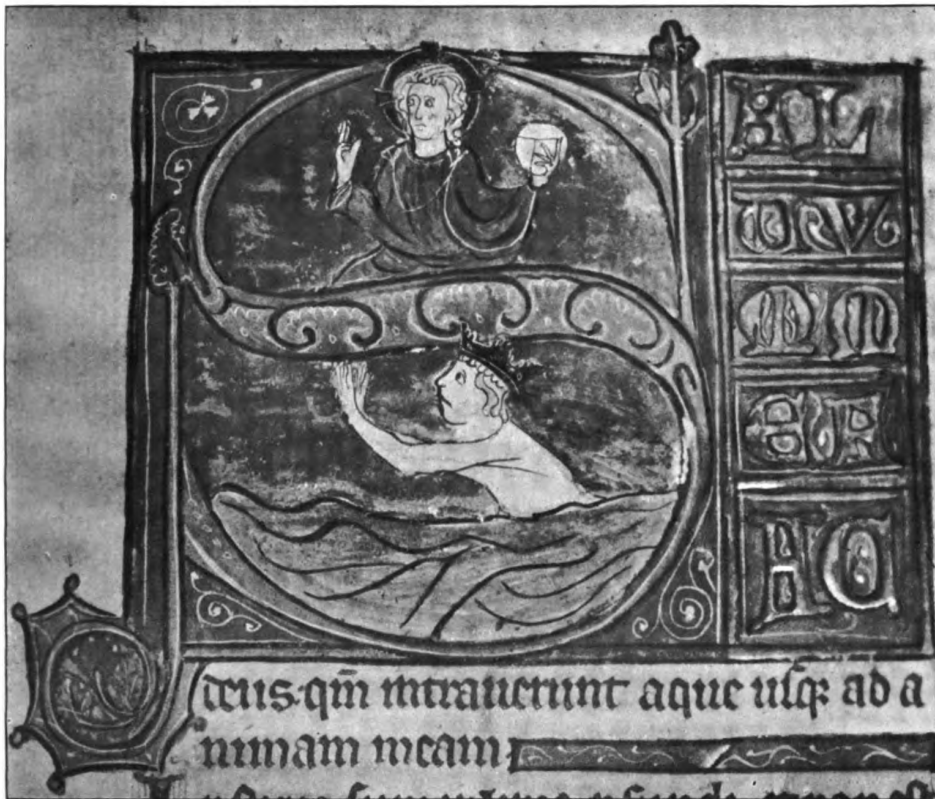 S
AL
UV
MM
EF
AC
deus·qm̄ intrauerunt aque usq; ad a
nimam meam